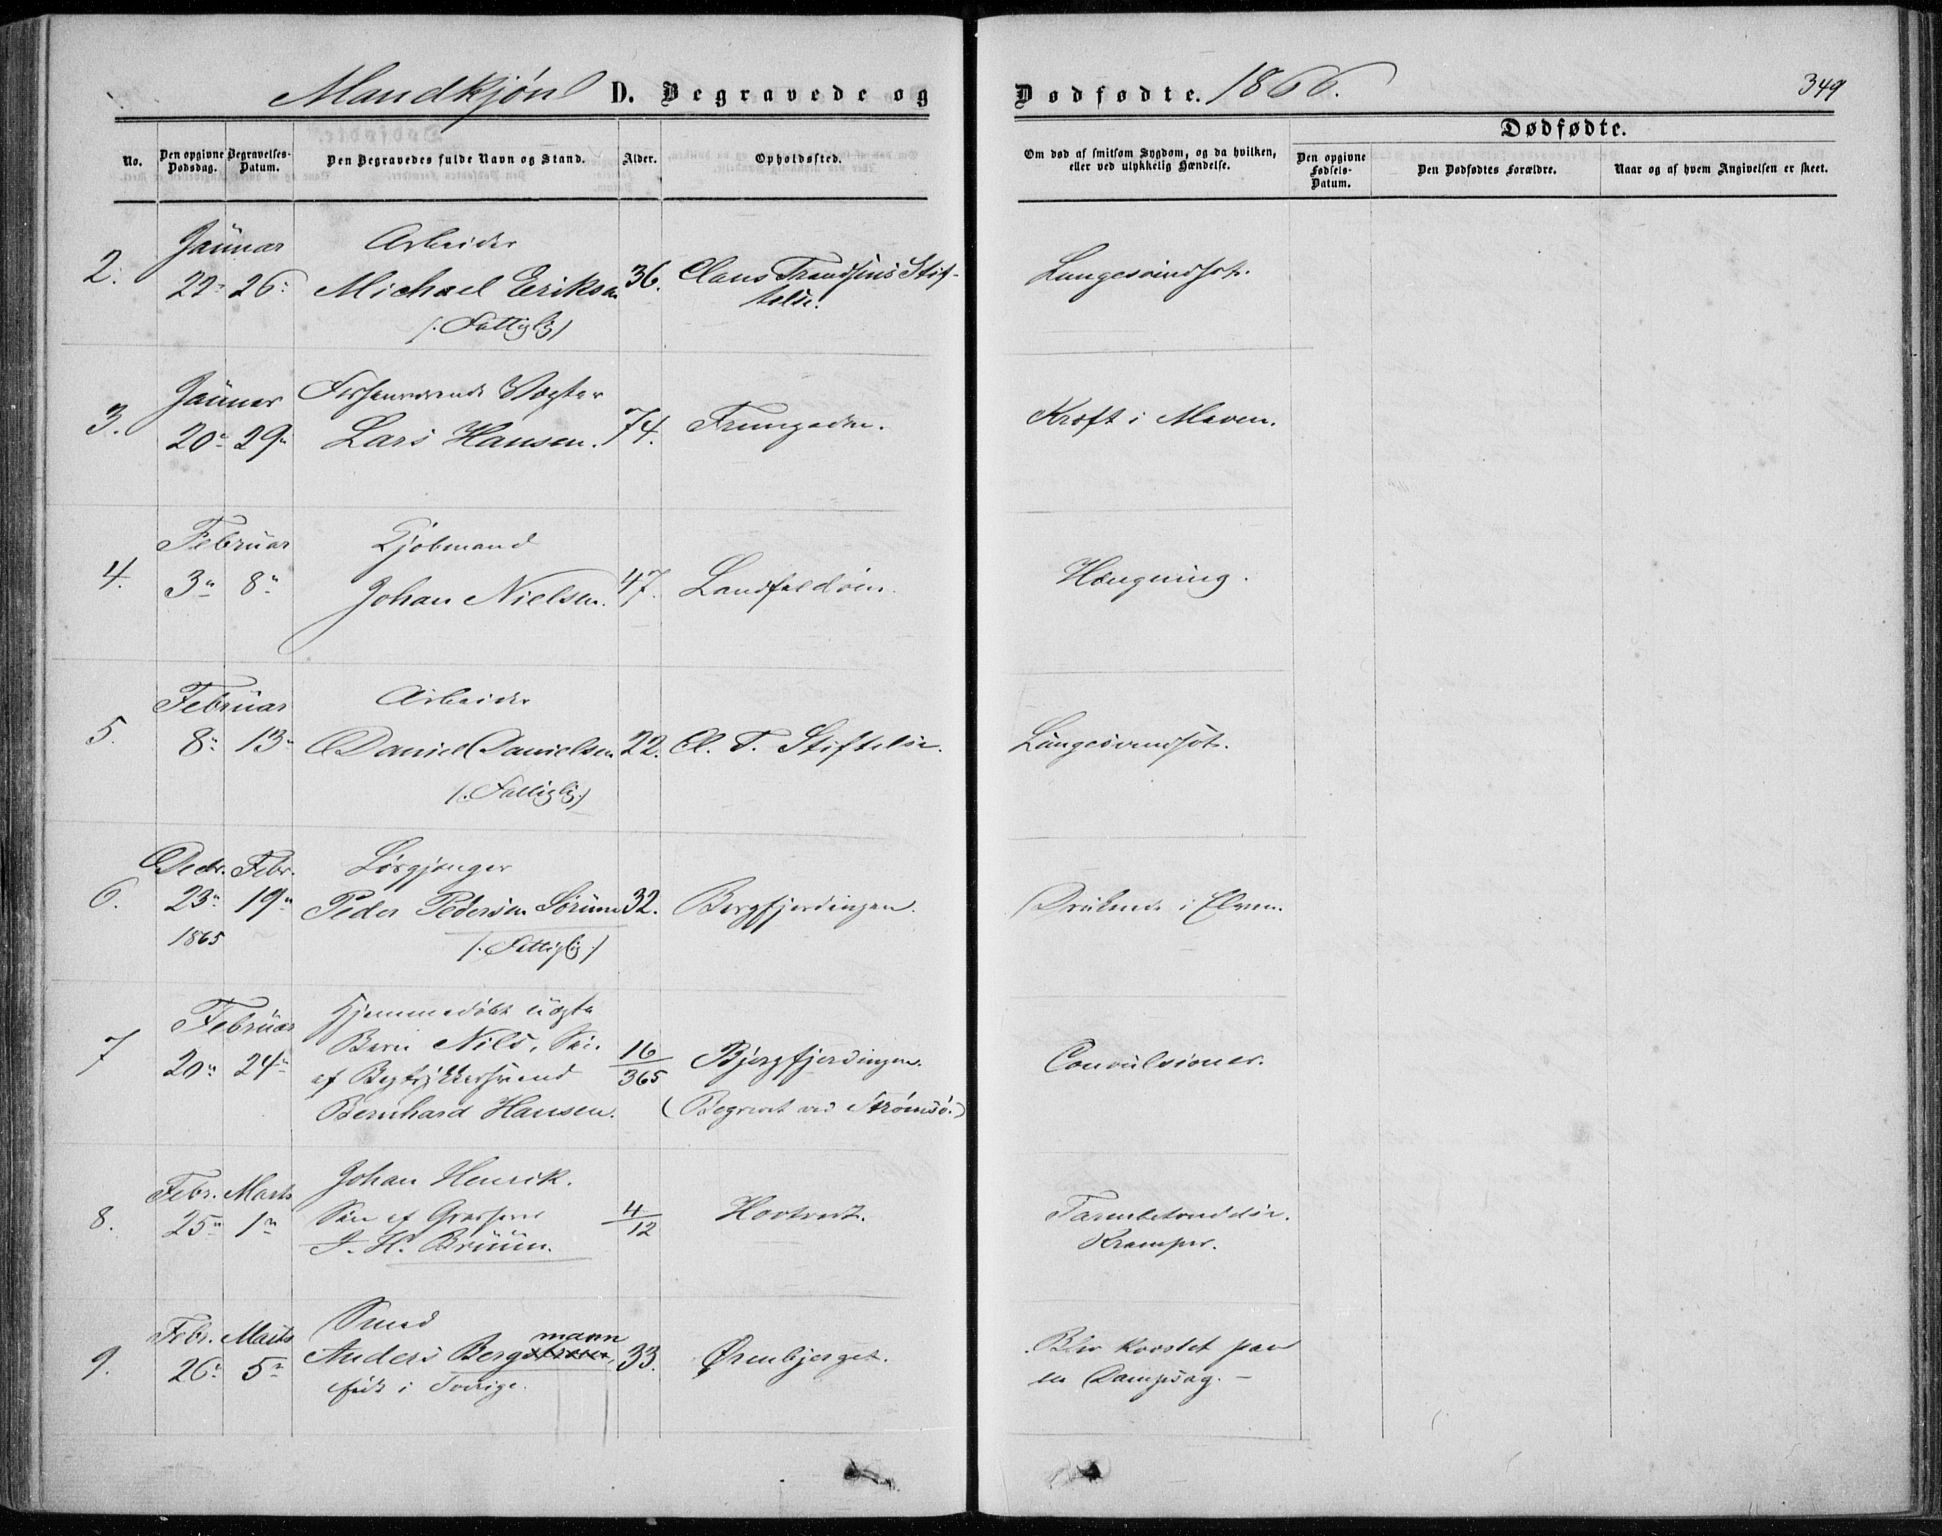 Mandkjøn D. Begravede og Dødfødte. 1866. 349
Dødfødte.
No. Den opgivne Dødsdag. Begravelses-Datum. Den Begravedes fulde Navn og Stand. Alder. Opholdssted.
Om død af smitsom Sygdom, og da hvilken, eller ved ulykkelig Hændelse. Den opgivne Fødsels-Datum. Den Dødfødtes Forældre. Naar og af hvem Angivelsen er skeet.
Januar Arbeider
2. 22 26 Michael Eriksen 36. Claus Trondsens Stif- Lungesvindsot.
telse.
(: Fattiglig)
Januar Forhenværende Vægter
3. 20 29 Lars Hansen. 74. Kræft i Maven.
Februar Kjøbmand
4. 3 8 Johan Nielsen. 47. Landfaldøen. Hængning.
Februar Arbeider
5. 8 13 Daniel Danielsen 22. Cl. T. Stiftelse. Lungesvindsot.
(: Fattiglig:)
Decbr. Febr. Løsgjænger
6. 23 19 Peder Pedersen Sørum 32. Bergfjerdingen. Druknede i Elven.
1865
(: Fattiglig :)
Februar Hjemmedøbt uægte
7 20 24 Barn Nils, Søn 16/365 Bjergfjerdingen. Convulsioner.
af Bogtrykkersvend
Bernhard Hansen. (Begravet ved Strømsø.)
Febr. Marts Johan Henrik.
8. 25 1 Søn af Grosserer 4/12 Tarmbetændelse.
J. H. Bruun. Kramper.
Febr. Marts Smed
mann
9. 26 5 Anders Bergstrøm, 33. Ørenbjerget. Blev knuset paa
født i Sverige. en Dampsag. –